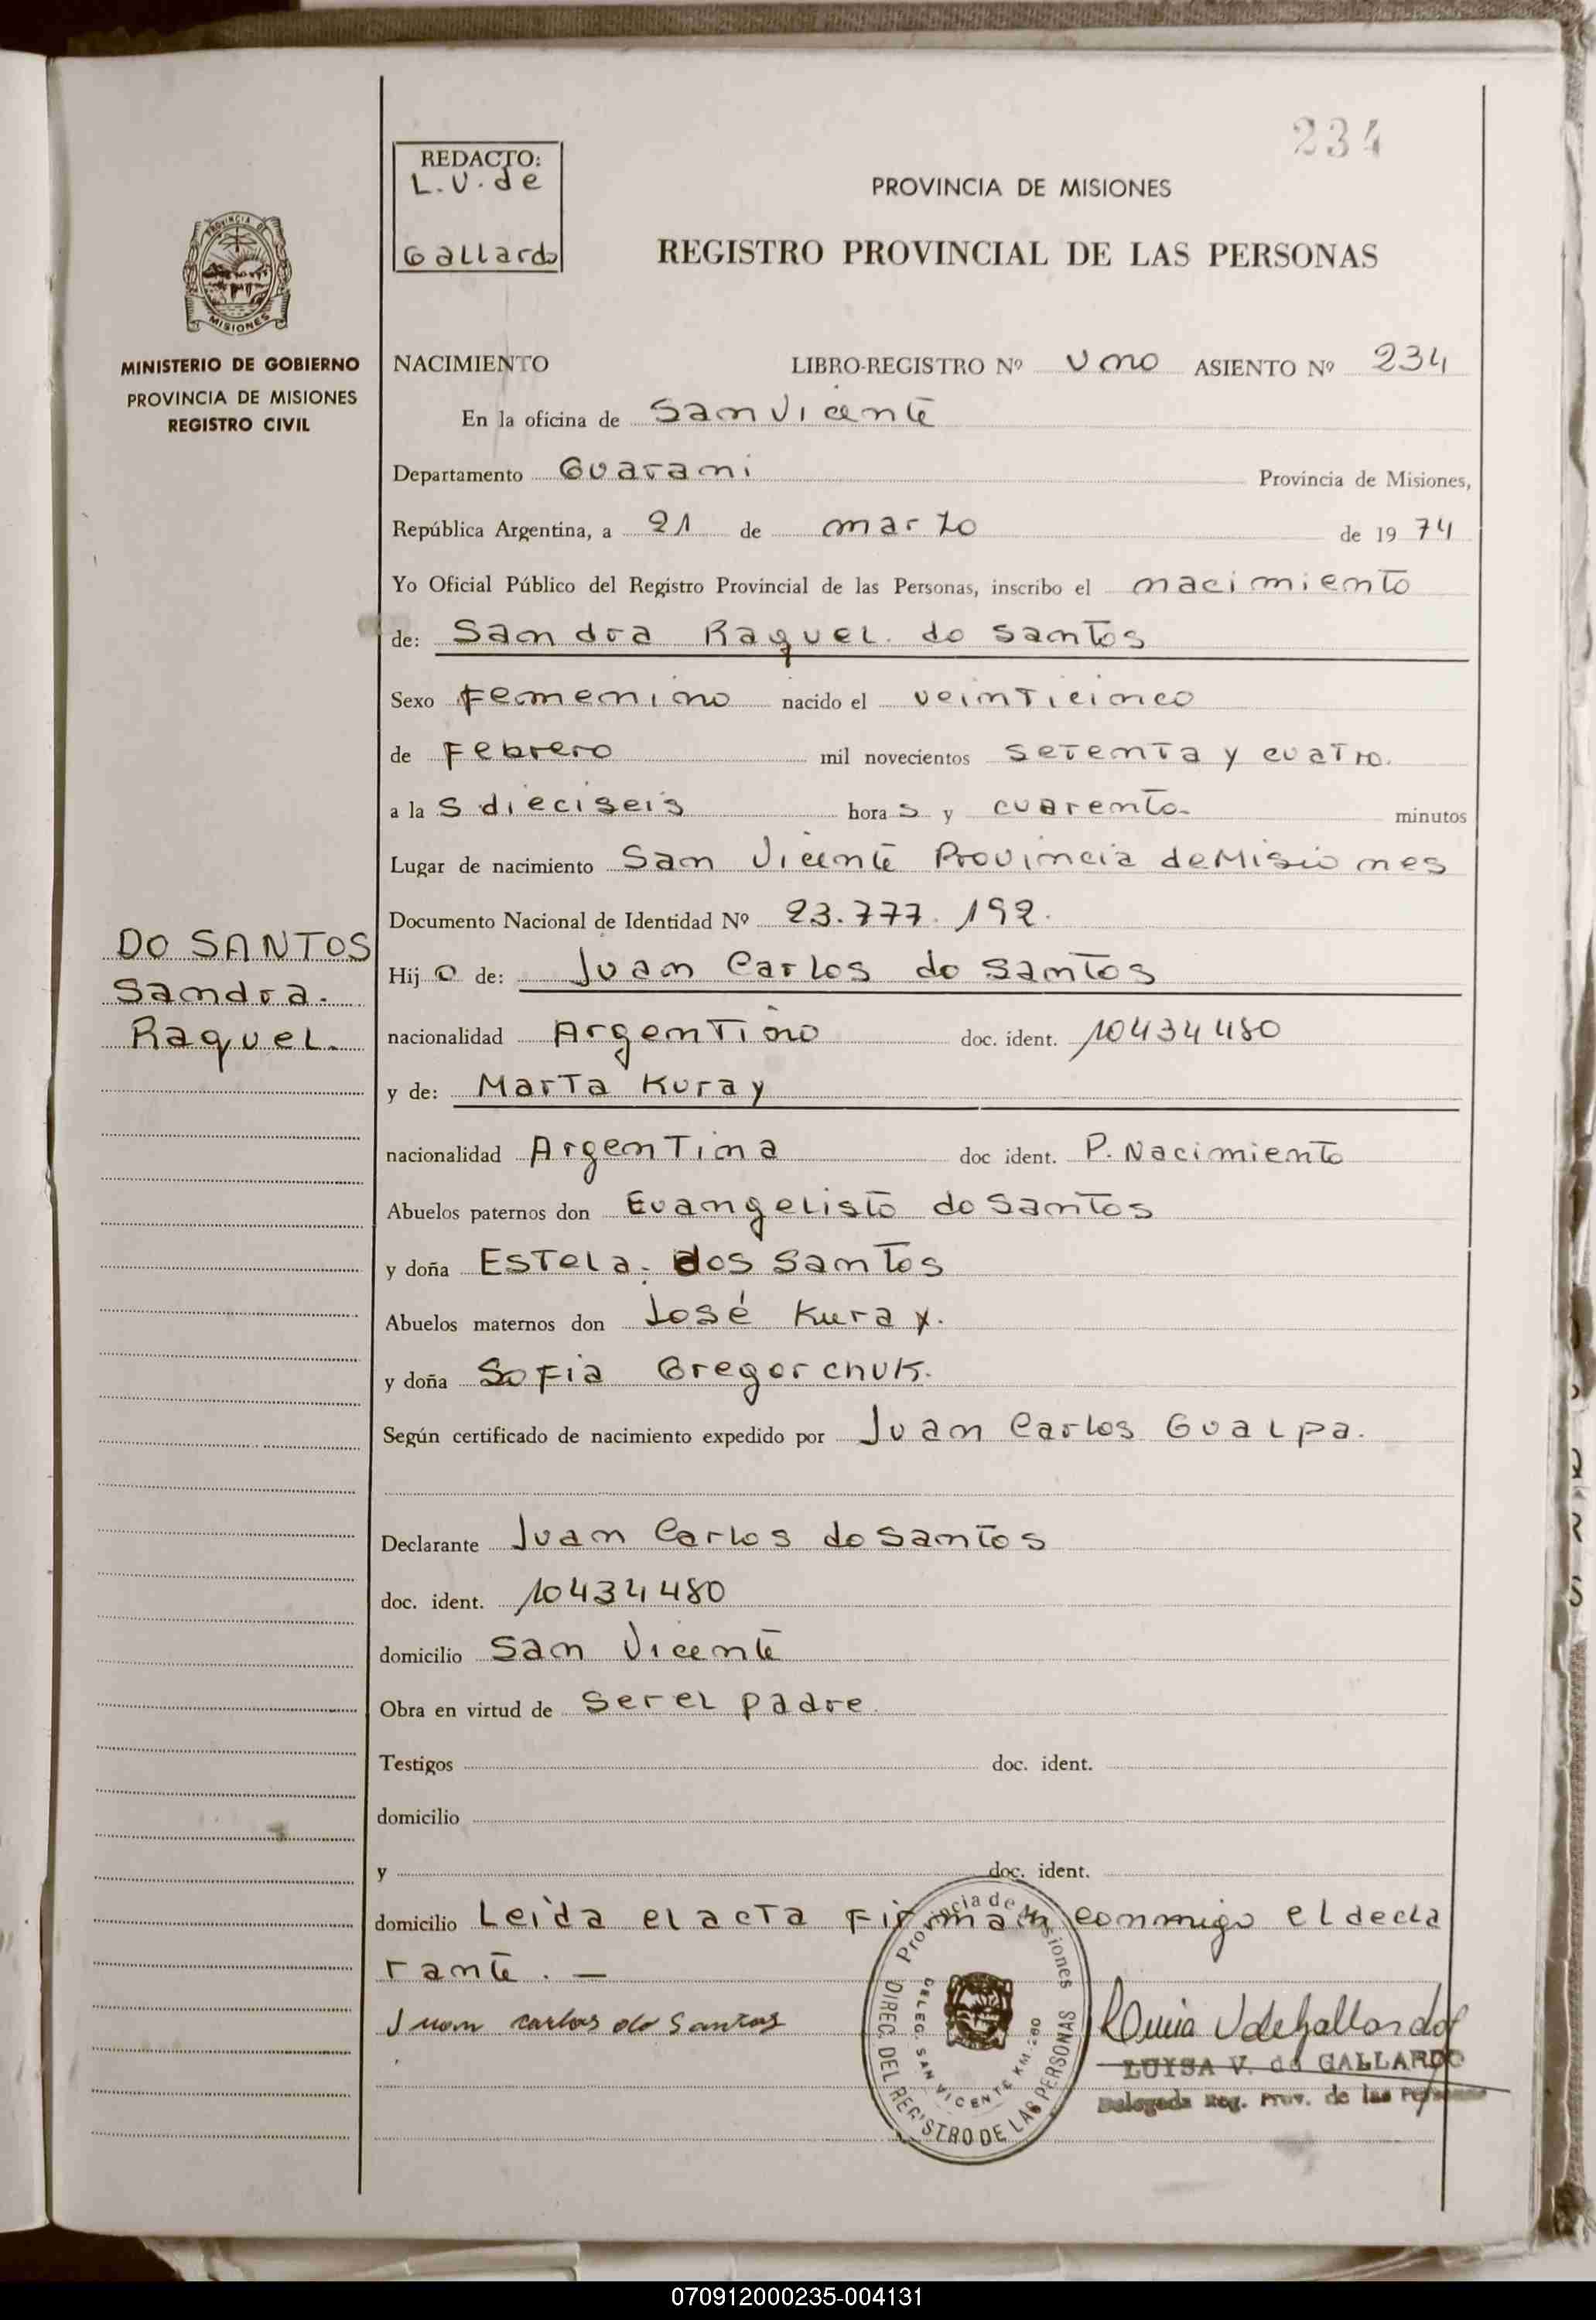 234
REDACTO:
L.V. de
Gallardo
PROVINCIA DE MISIONES
REGISTRO PROVINCIAL DE LAS PERSONAS
PROVINCIA DE
MISIONES
MINISTERIO DE GOBIERNO
PROVINCIA DE MISIONES
REGISTRO CIVIL
NACIMIENTO LIBRO-REGISTRO Nº Uno ASIENTO Nº 234
En la oficina de San Vicente
Departamento Guarani Provincia de Misiones,
República Argentina, a 21 de marzo de 1974
Yo Oficial Público del Registro Provincial de las Personas, inscribo el nacimiento
de: Sandra Raquel. do santos
Sexo Femenino nacido el veinticinco
de Febrero mil novecientos setenta y cuatro.
a las dieciseis horas y cuarenta minutos
Lugar de nacimiento San Vicente Provincia de Misiones
Documento Nacional de Identidad Nº 23.777.192.
DO SANTOS
Sandra.
Raquel.
Hijo de: Juan Carlos do Santos
nacionalidad Argentino doc. ident. 10434480
y de: Marta Kuray
nacionalidad Argentina doc ident. P. Nacimiento
Abuelos paternos don Evangelisto do Santos
y doña Estela. dos Santos
Abuelos maternos don José Kuray.
y doña Sofia Gregorchuk.
Según certificado de nacimiento expedido por Juan Carlos Gualpa.
Declarante Juan Carlos do Santos
doc. ident. 10434480
domicilio San Vicente
Obra en virtud de ser el padre.
Testigos doc. ident.
domicilio
y doc. ident.
domicilio Leida el acta Firman conmigo el decla
rante. —
Juan carlos do Santos
Provincia de Misiones
DIREC. DEL REGISTRO DE LAS PERSONAS
DELEG. SAN VICENTE KM. 280
LUYSA V. de GALLARDO
Delegada Reg. Prov. de las
070912000235-004131